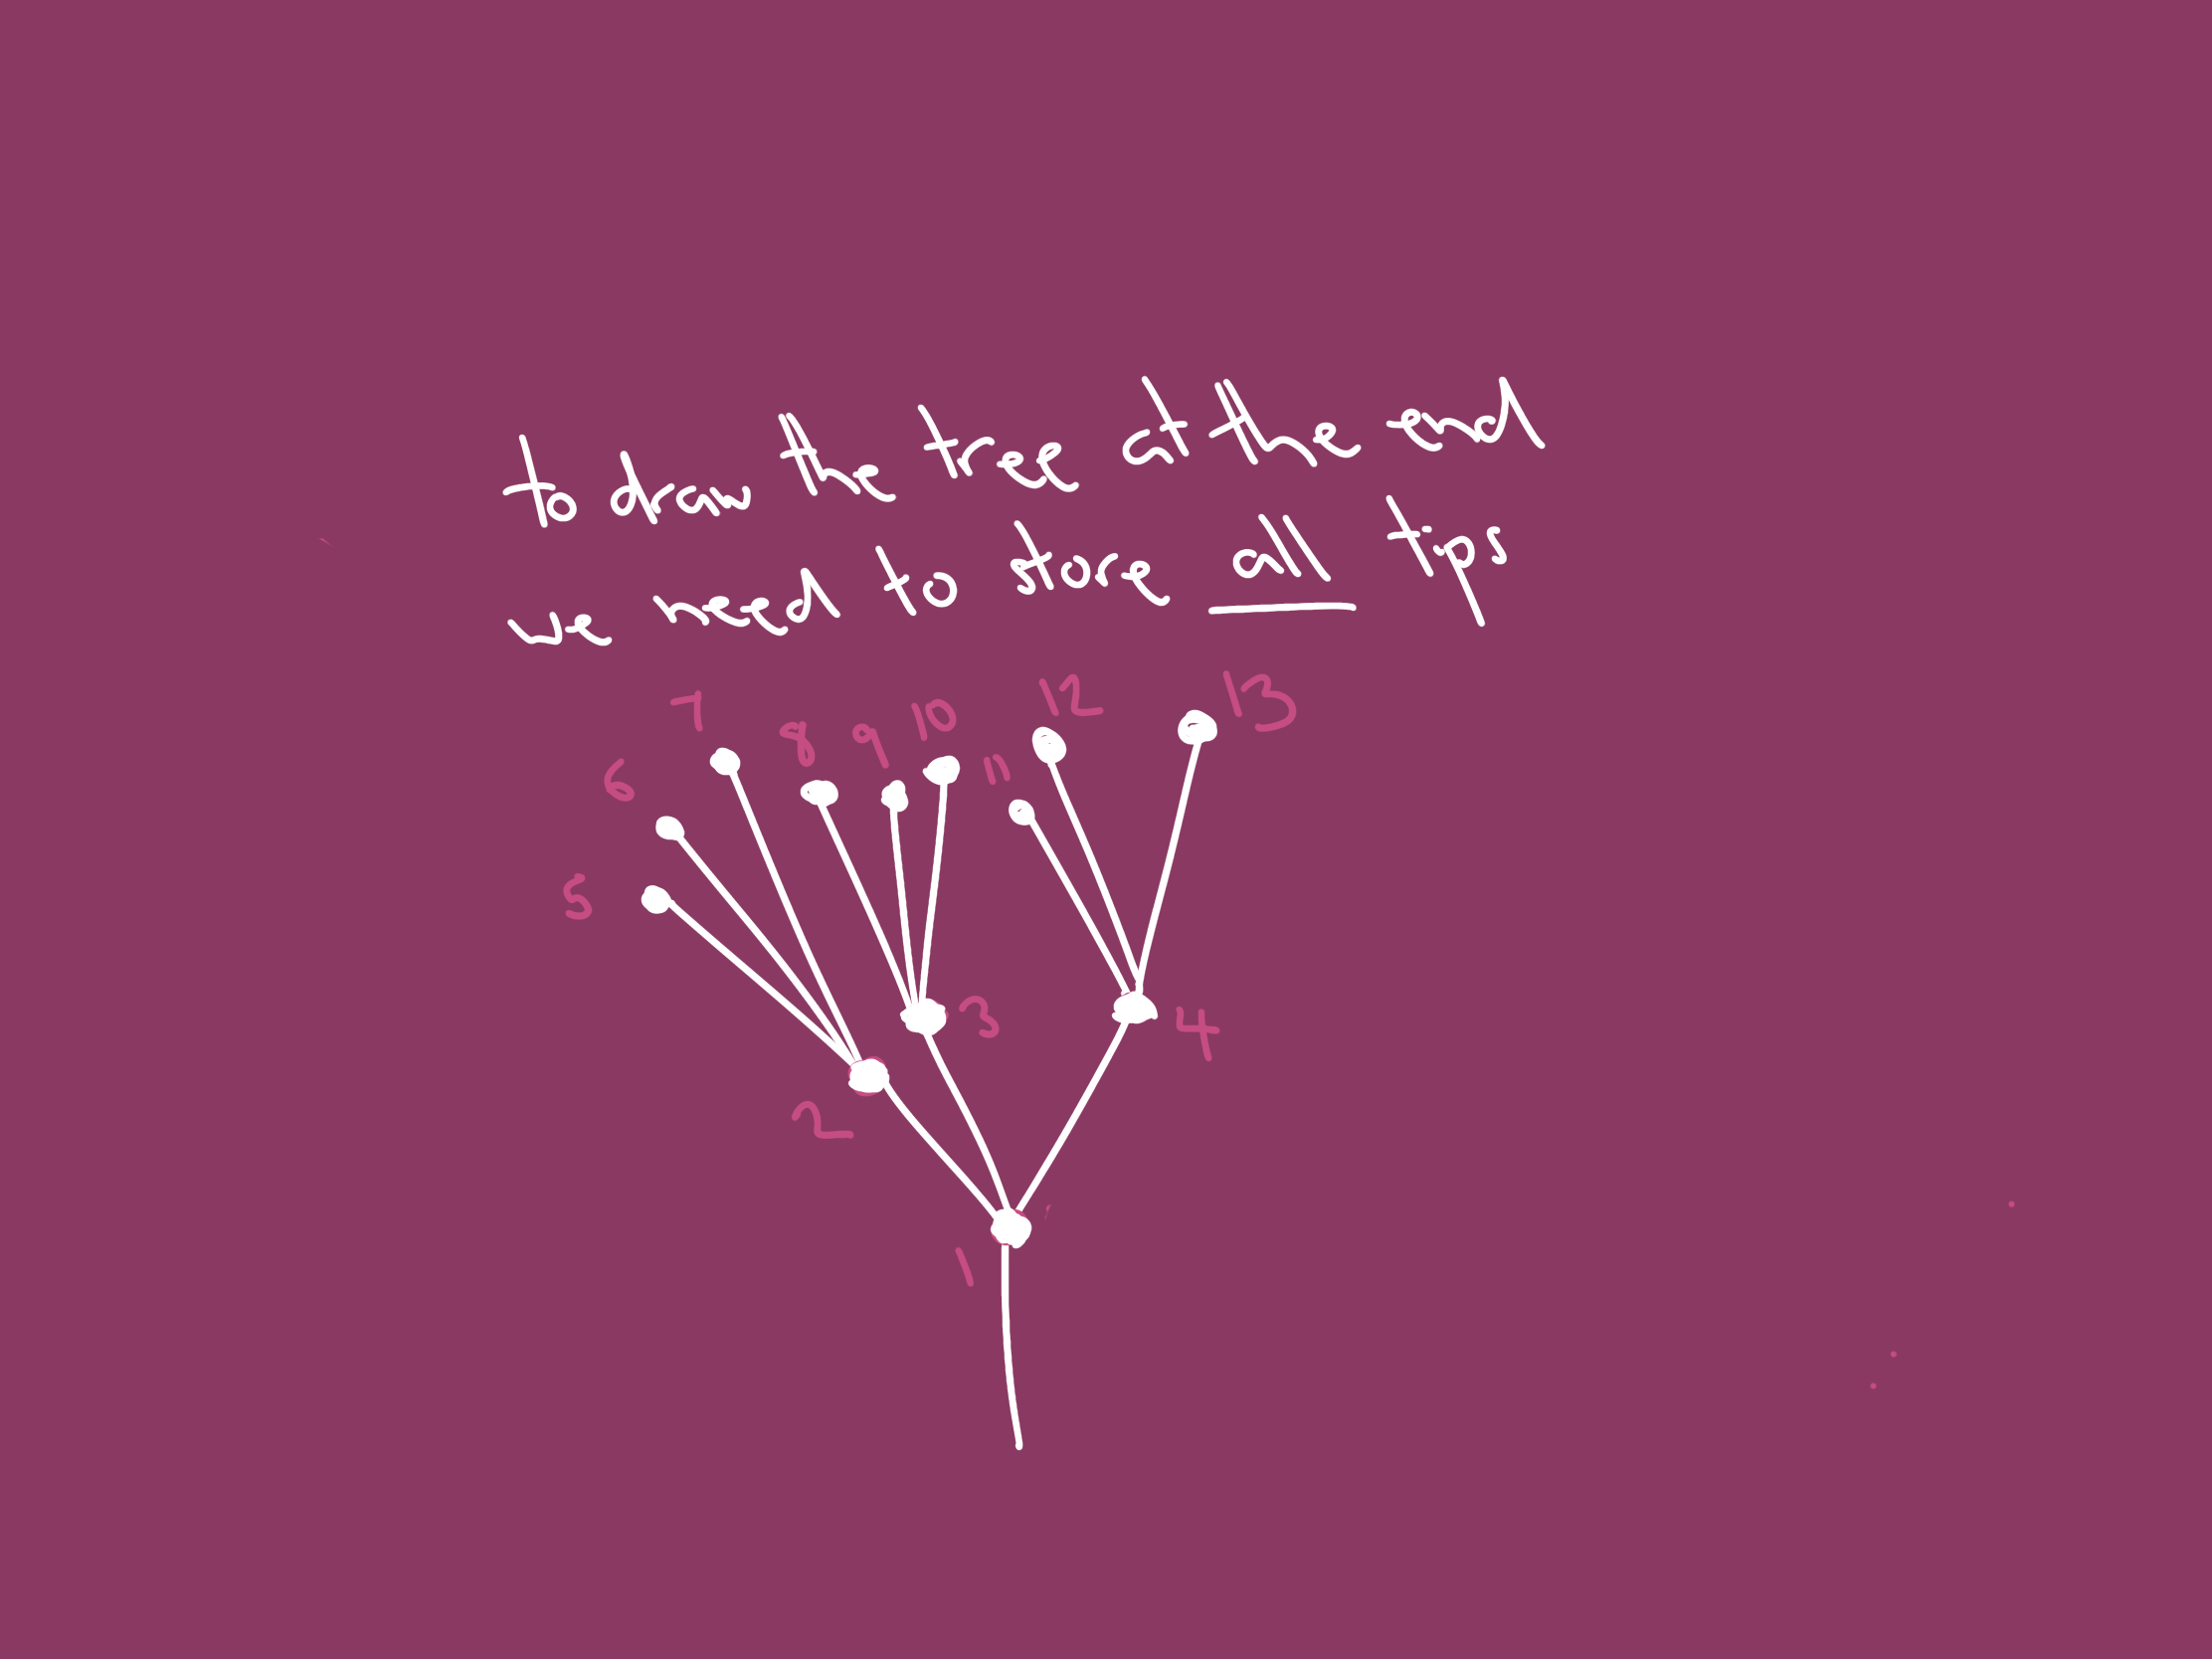 to draw the tree at the end
we need to store all tips
7
8
9
10
11
12
13
6
5
3
4
2
1